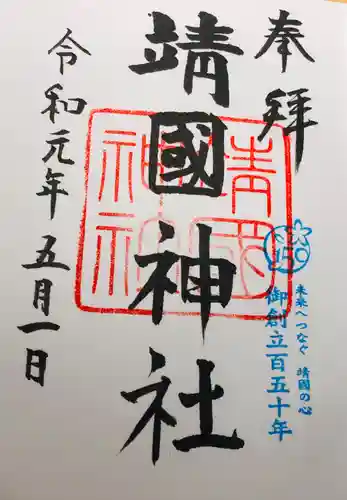 奉拝
靖國神社
令和元年五月一日
靖國
神社
150
未来へつなぐ 靖國の心
御創立百五十年